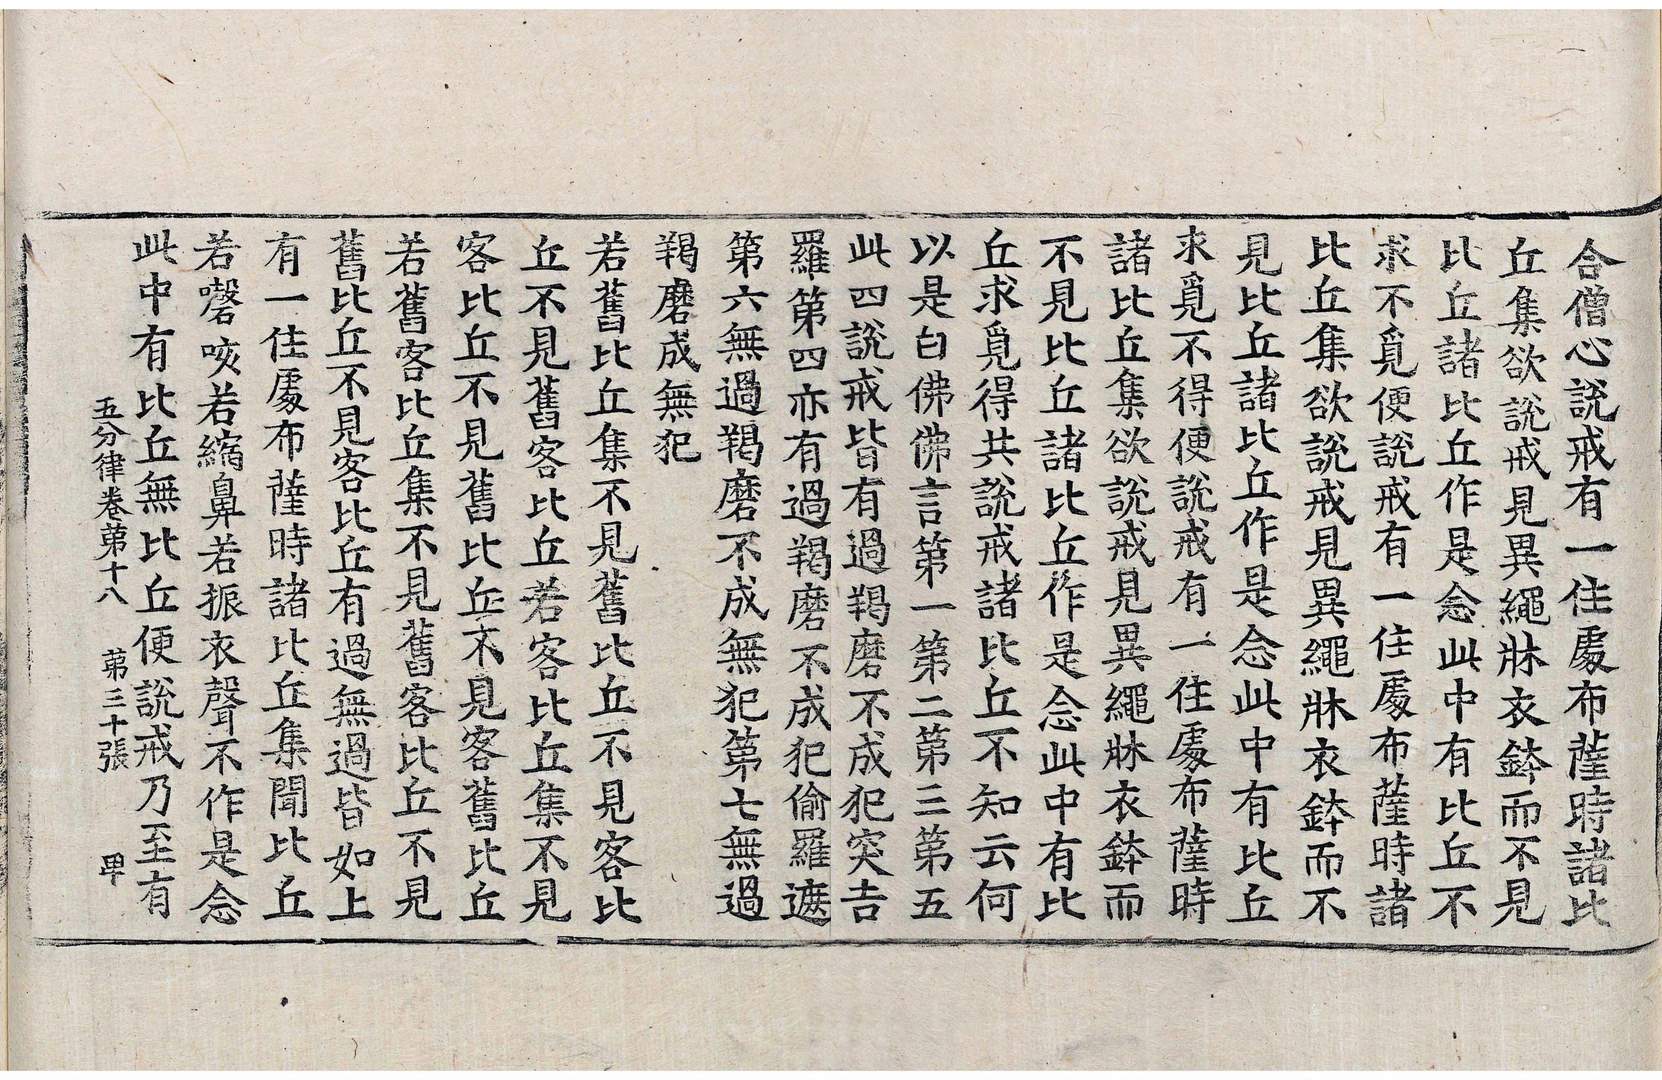 合僧心說戒有一住處布薩時諸比
丘集欲說戒見異繩牀衣鉢而不見
比丘諸比丘作是念此中有比丘不
求不覓便說戒有一住處布薩時諸
比丘集欲說戒見異繩牀衣鉢而不
見比丘諸比丘作是念此中有比丘
求覓不得便說戒有一住處布薩時
諸比丘集欲說戒見異繩牀衣鉢而
不見比丘諸比丘作是念此中有比
丘求覓得共說戒諸比丘不知云何
以是白佛佛言第一第二第三第五
此四說戒皆有過羯磨不成犯突吉
羅第四亦有過羯磨不成犯偷羅遮
第六無過羯磨不成無犯第七無過
羯磨成無犯
若舊比丘集不見舊比丘不見客比
丘不見舊客比丘若客比丘集不見
客比丘不見舊比丘不見客舊比丘
若舊客比丘集不見舊客比丘不見
舊比丘不見客比丘有過無過皆如上
有一住處布薩時諸比丘集聞比丘
若謦咳若縮鼻若振衣聲不作是念
此中有比丘無比丘便說戒乃至有
五分律卷第十八 第三十張 甲